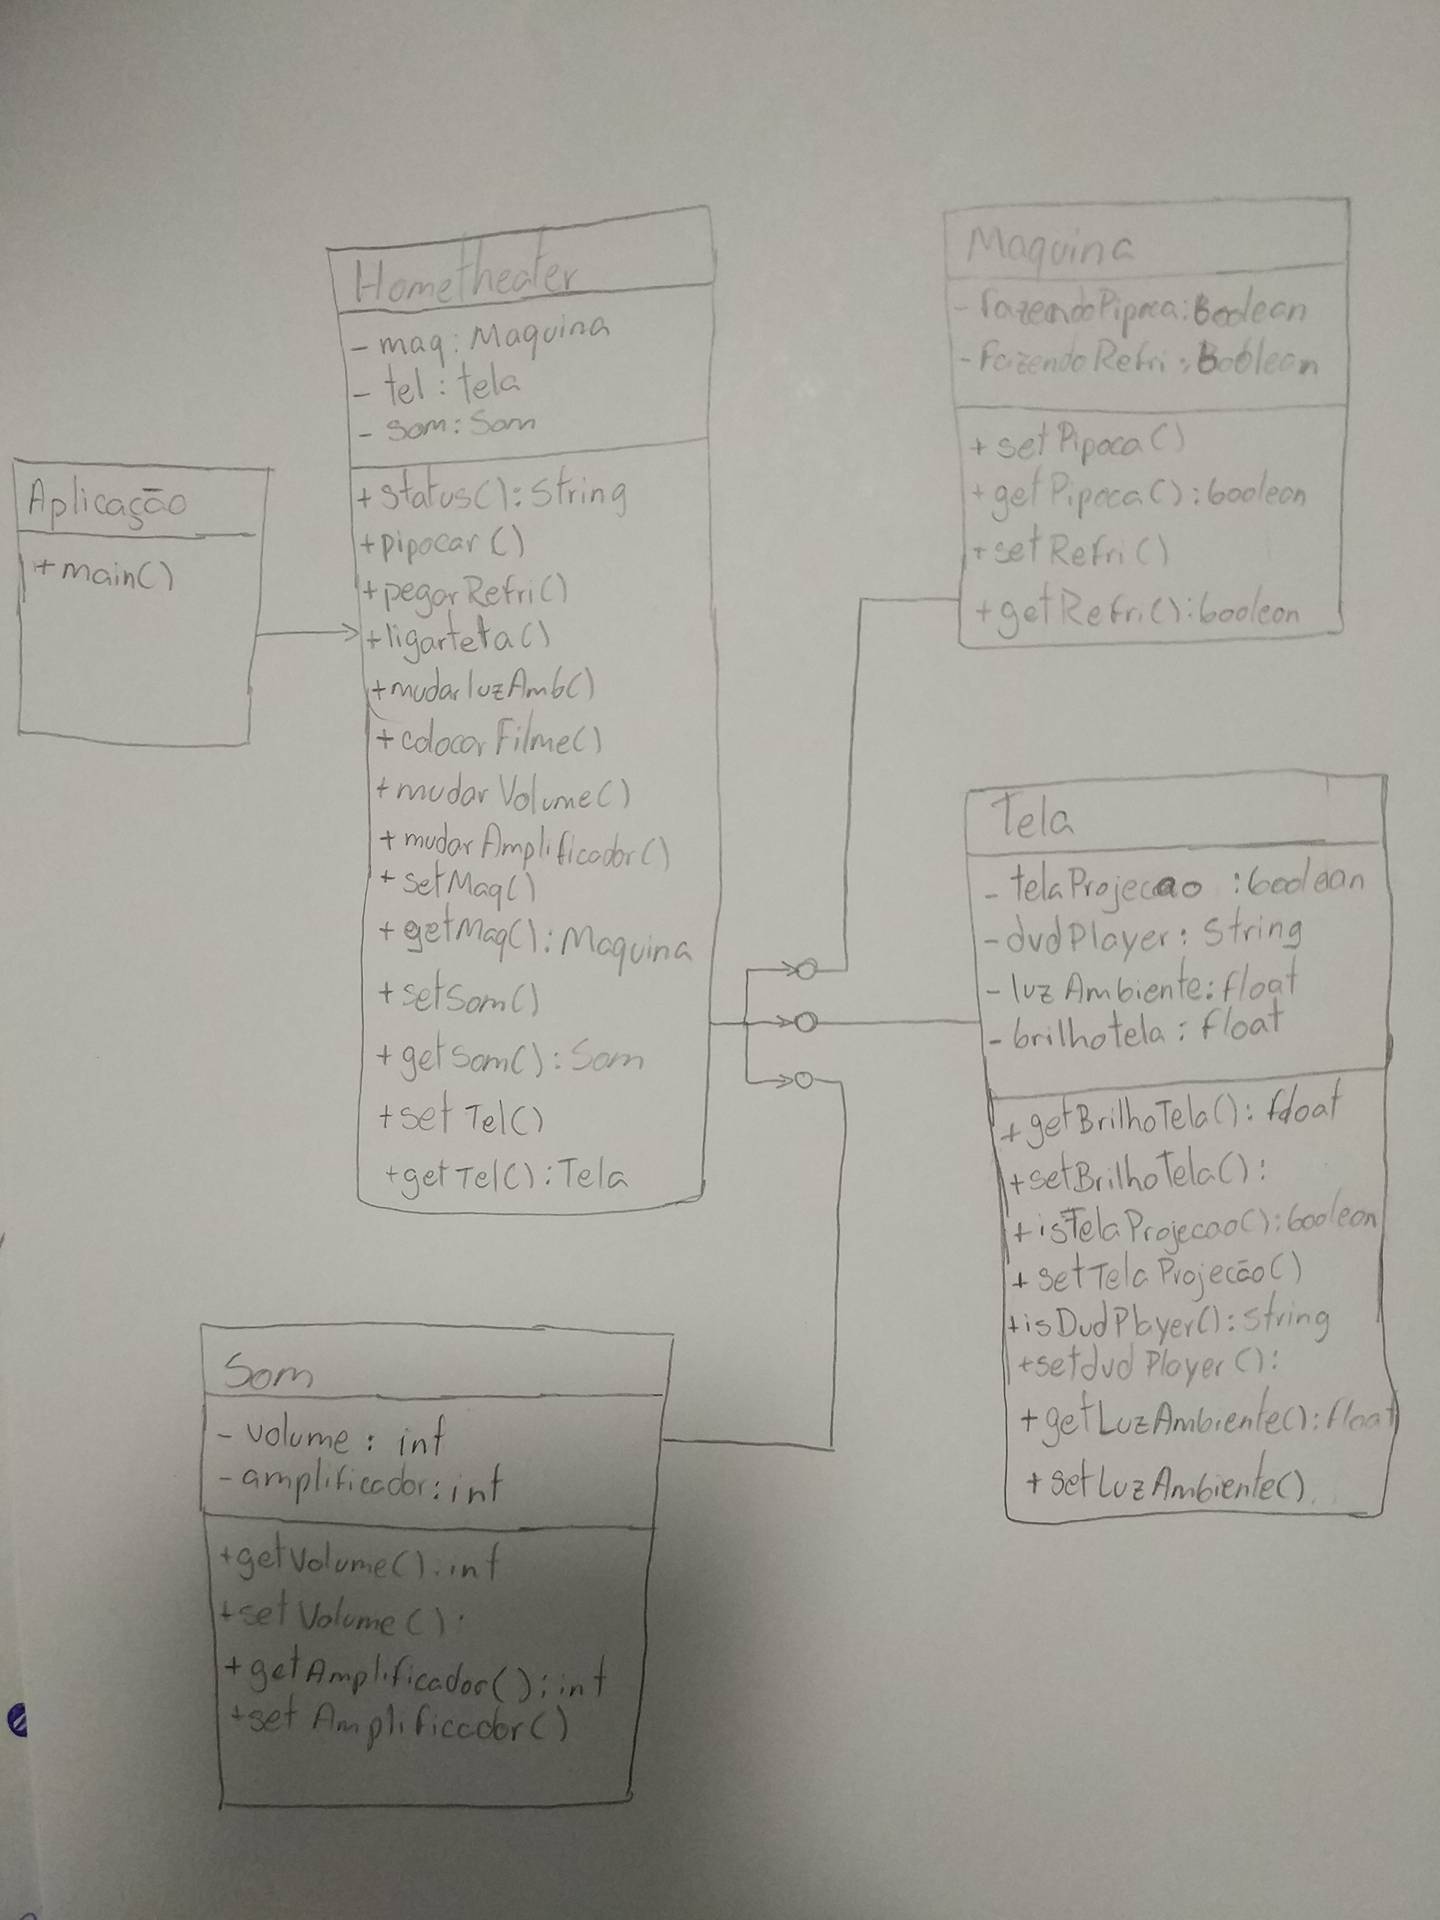 Aplicação
+main()
Hometheater
- maq: Maquina
- tel: tela
- som: Som
+status(): String
+pipocar()
+pegarRefri()
+ligartela()
+mudarluzAmb()
+colocarFilme()
+mudarVolume()
+mudarAmplificador()
+setMaq()
+getMaq(): Maquina
+setSom()
+getSom(): Som
+setTel()
+getTel(): Tela
Maquina
- fazendoPipoca: Boolean
- FazendoRefri: Boolean
+setPipoca()
+getPipoca(): boolean
+setRefri()
+getRefri(): boolean
Tela
- telaProjecao : boolean
- dvdPlayer: String
- luzAmbiente: float
- brilhotela: float
+getBrilhoTela(): float
+setBrilhoTela():
+isTelaProjecao(): boolean
+setTelaProjecão()
+isDvdPlayer(): String
+setdvdPlayer():
+getLuzAmbiente(): float
+setLuzAmbiente()
Som
- volume: int
- amplificador: int
+getVolume(): int
+setVolume():
+getAmplificador(): int
+setAmplificador()